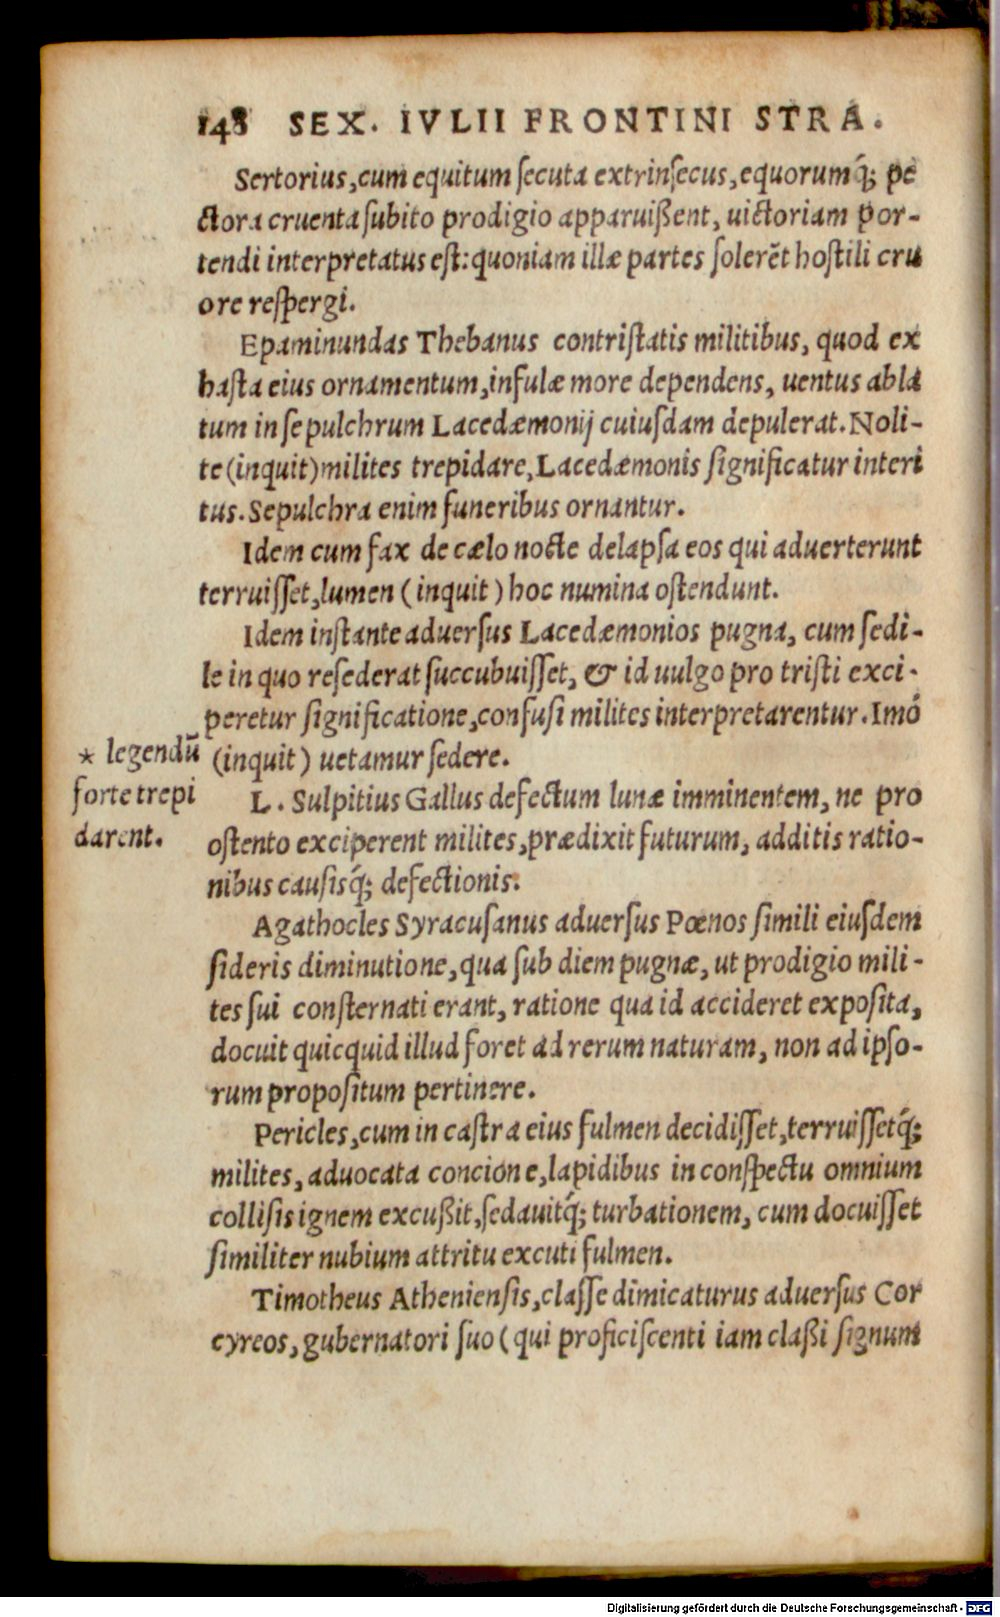 148 SEX. IVLII FRONTINI STRA.
Sertorius, cum equitum ſecuta extrinſecus, equorumq́; pe
ctora cruenta ſubito prodigio apparuißent, uictoriam por-
tendi interpretatus eſt: quoniam illæ partes ſolerẽt hoſtili cru
ore reſpergi.
Epaminundas Thebanus contriſtatis militibus, quod ex
haſta eius ornamentum, infulæ more dependens, uentus abla
tum in ſepulchrum Lacedæmonij cuiuſdam depulerat. Noli-
te (inquit) milites trepidare, Lacedæmonis ſignificatur interi
tus. Sepulchra enim funeribus ornantur.
Idem cum fax de cælo nocte delapſa eos qui aduerterunt
terruiſſet, lumen (inquit) hoc numina oſtendunt.
Idem inſtante aduerſus Lacedæmonios pugna, cum ſedi-
le in quo reſederat ſuccubuiſſet, & id uulgo pro triſti exci-
peretur ſignificatione, confuſi milites interpretarentur. Imó
(inquit) uetamur ſedere.
* legendũ
forte trepi
darent.
L. Sulpitius Gallus defectum lunæ imminentem, ne pro
oſtento exciperent milites, prædixit futurum, additis ratio-
nibus cauſisq́; defectionis.
Agathocles Syracuſanus aduerſus Pœnos ſimili eiuſdem
ſideris diminutione, qua ſub diem pugnæ, ut prodigio mili-
tes ſui conſternati erant, ratione qua id accideret expoſita,
docuit quicquid illud foret ad rerum naturam, non ad ipſo-
rum propoſitum pertinere.
Pericles, cum in caſtra eius fulmen decidiſſet, terruiſſetq́;
milites, aduocata concione, lapidibus in conſpectu omnium
colliſis ignem excußit, ſedauitq́; turbationem, cum docuiſſet
ſimiliter nubium attritu excuti fulmen.
Timotheus Athenienſis, claſſe dimicaturus aduerſus Cor
cyreos, gubernatori ſuo (qui proficiſcenti iam claßi ſignum
Digitalisierung gefördert durch die Deutsche Forschungsgemeinschaft - DFG